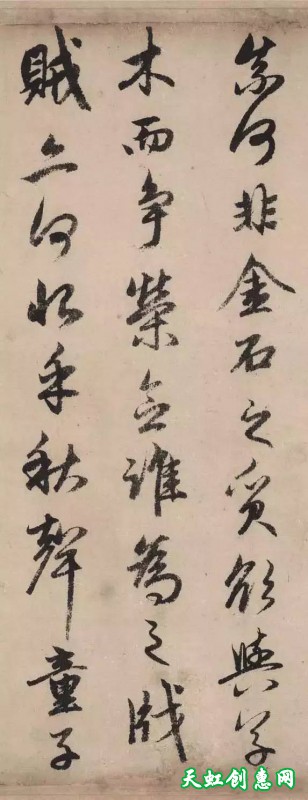 奈何非金石之質欲與草
木而爭榮念誰為之戕
賊亦何恨乎秋聲童子
天虹创惠网